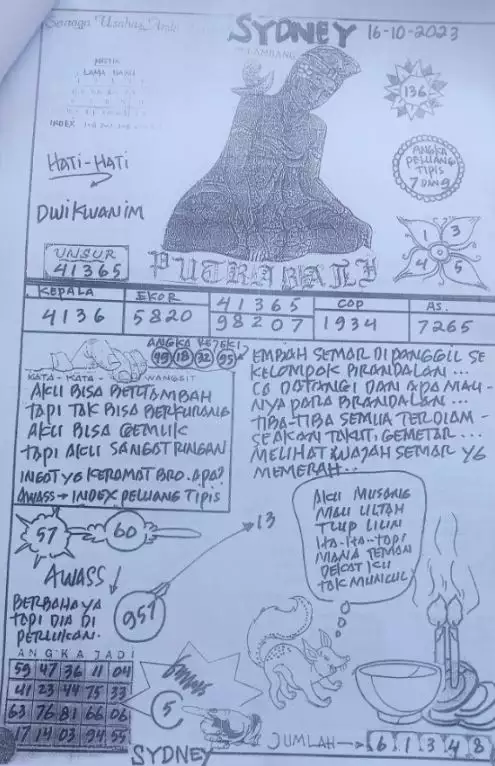 SYDNEY 16-10-2023
LAMBANG
LAMA BARU
INDEX
136
HATI-HATI
DWIKWANIM
ANGKA
PELUANG
TIPIS
7 DAN 9
1 3
4 5
UNSUR
41365
PUTRABALI
KEPALA EKOR 41365 COP AS.
4136 5820 98207 1934 7265
ANGKA REJEKI
79 18 32 95
KATA-KATA WANGSIT
AKU BISA BERTAMBAH
TAPI TAK BISA BERKURANG
AKU BISA GEMUK
TAPI AKU SANGAT RINGAN
INGAT YG KERAMAT BRO. APA?
AWASS → INDEX PELUANG TIPIS
EMPAH SEMAR DIPANGGIL SE
KELOMPOK BRANDALAN...
CO DATANGI DAN APA MAU-
NYA PARA BRANDALAN...
TIBA-TIBA SEMUA TERDIAM-
SEAKAN TAKUT, GEMETAR...
MELIHAT WAJAH SEMAR YG
MEMERAH..
57 60
13
AKU MUSANG
MAU ULTAH
TIUP LILIN
HA-HA-TAPI
MANA TEMAN
DEKAT KU
TAK MUNCUL
AWASS
BERBAHAYA
TAPI DIA DI
PERLUKAN.
957
ANGKA JADI
59 47 36 11 04
41 23 44 75 33
63 76 81 66 06
17 14 03 94 55
5
SYDNEY
JUMLAH → 6 1 3 4 8